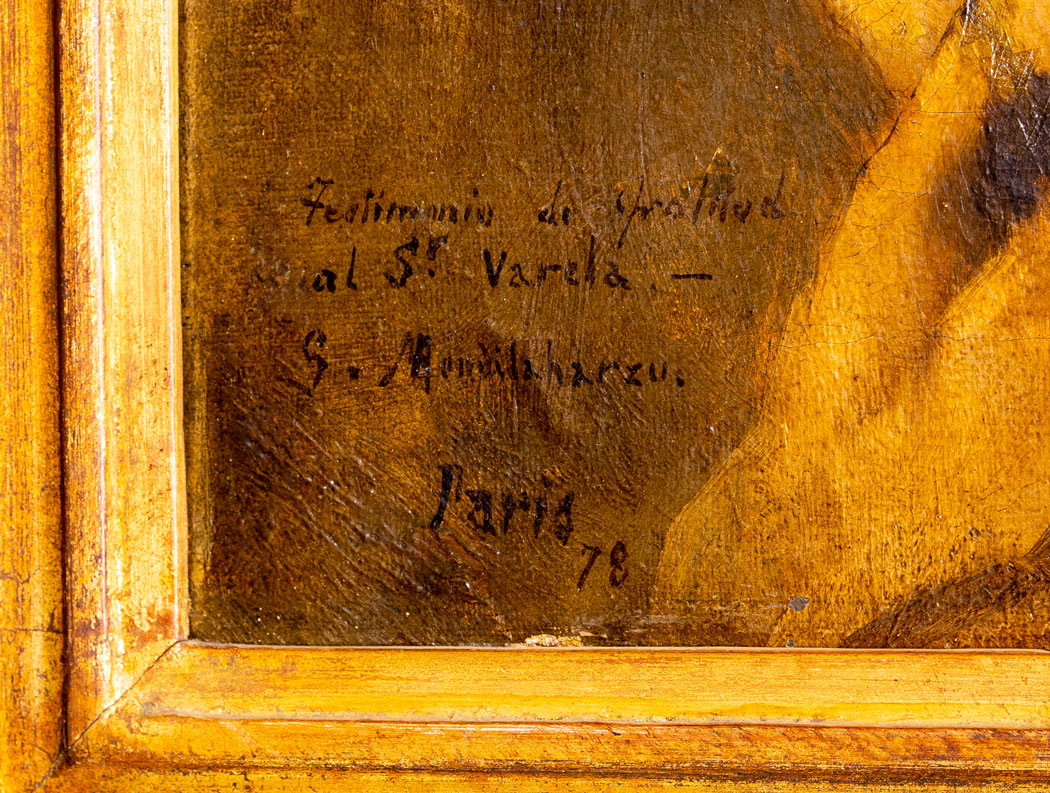 Testimonio de Gratitud
al Sr. Varela. —
G. Mendilaharzu.
Paris
78